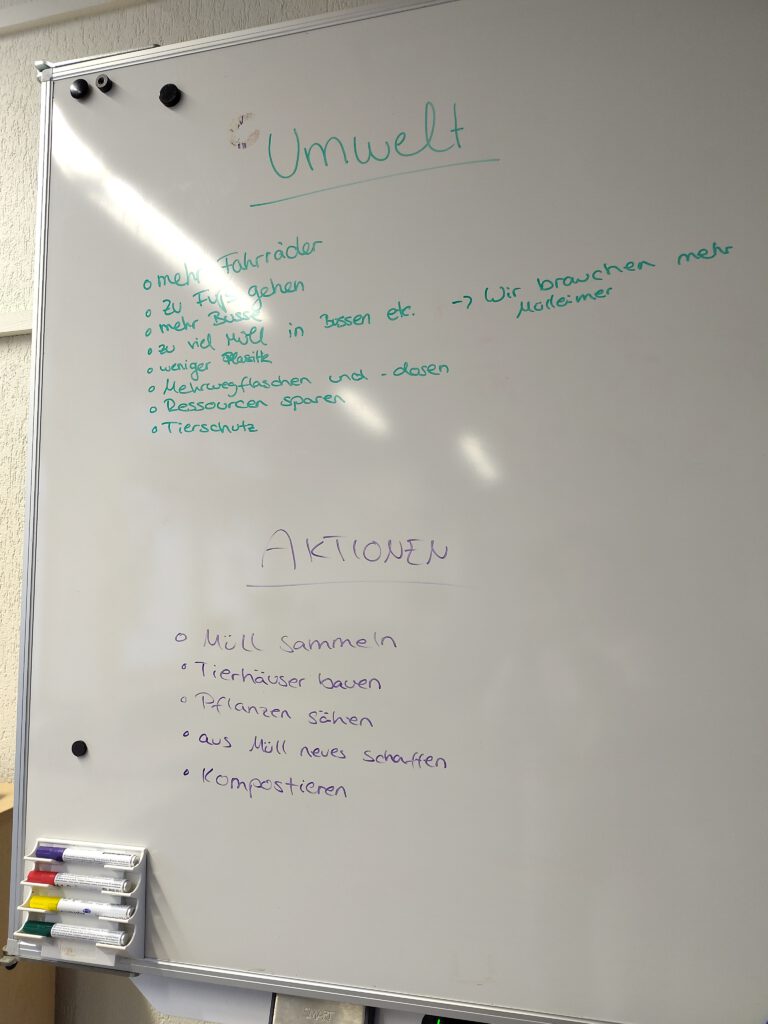 Umwelt
o mehr Fahrräder
o zu Fuß gehen
o mehr Busse
o zu viel Müll in Bussen etc. -> Wir brauchen mehr
Mülleimer
o weniger Plastik
o Mehrwegflaschen und -dosen
o Ressourcen sparen
o Tierschutz
AKTIONEN
o Müll sammeln
• Tierhäuser bauen
o Pflanzen sähen
• aus Müll neues schaffen
• Kompostieren
SMART